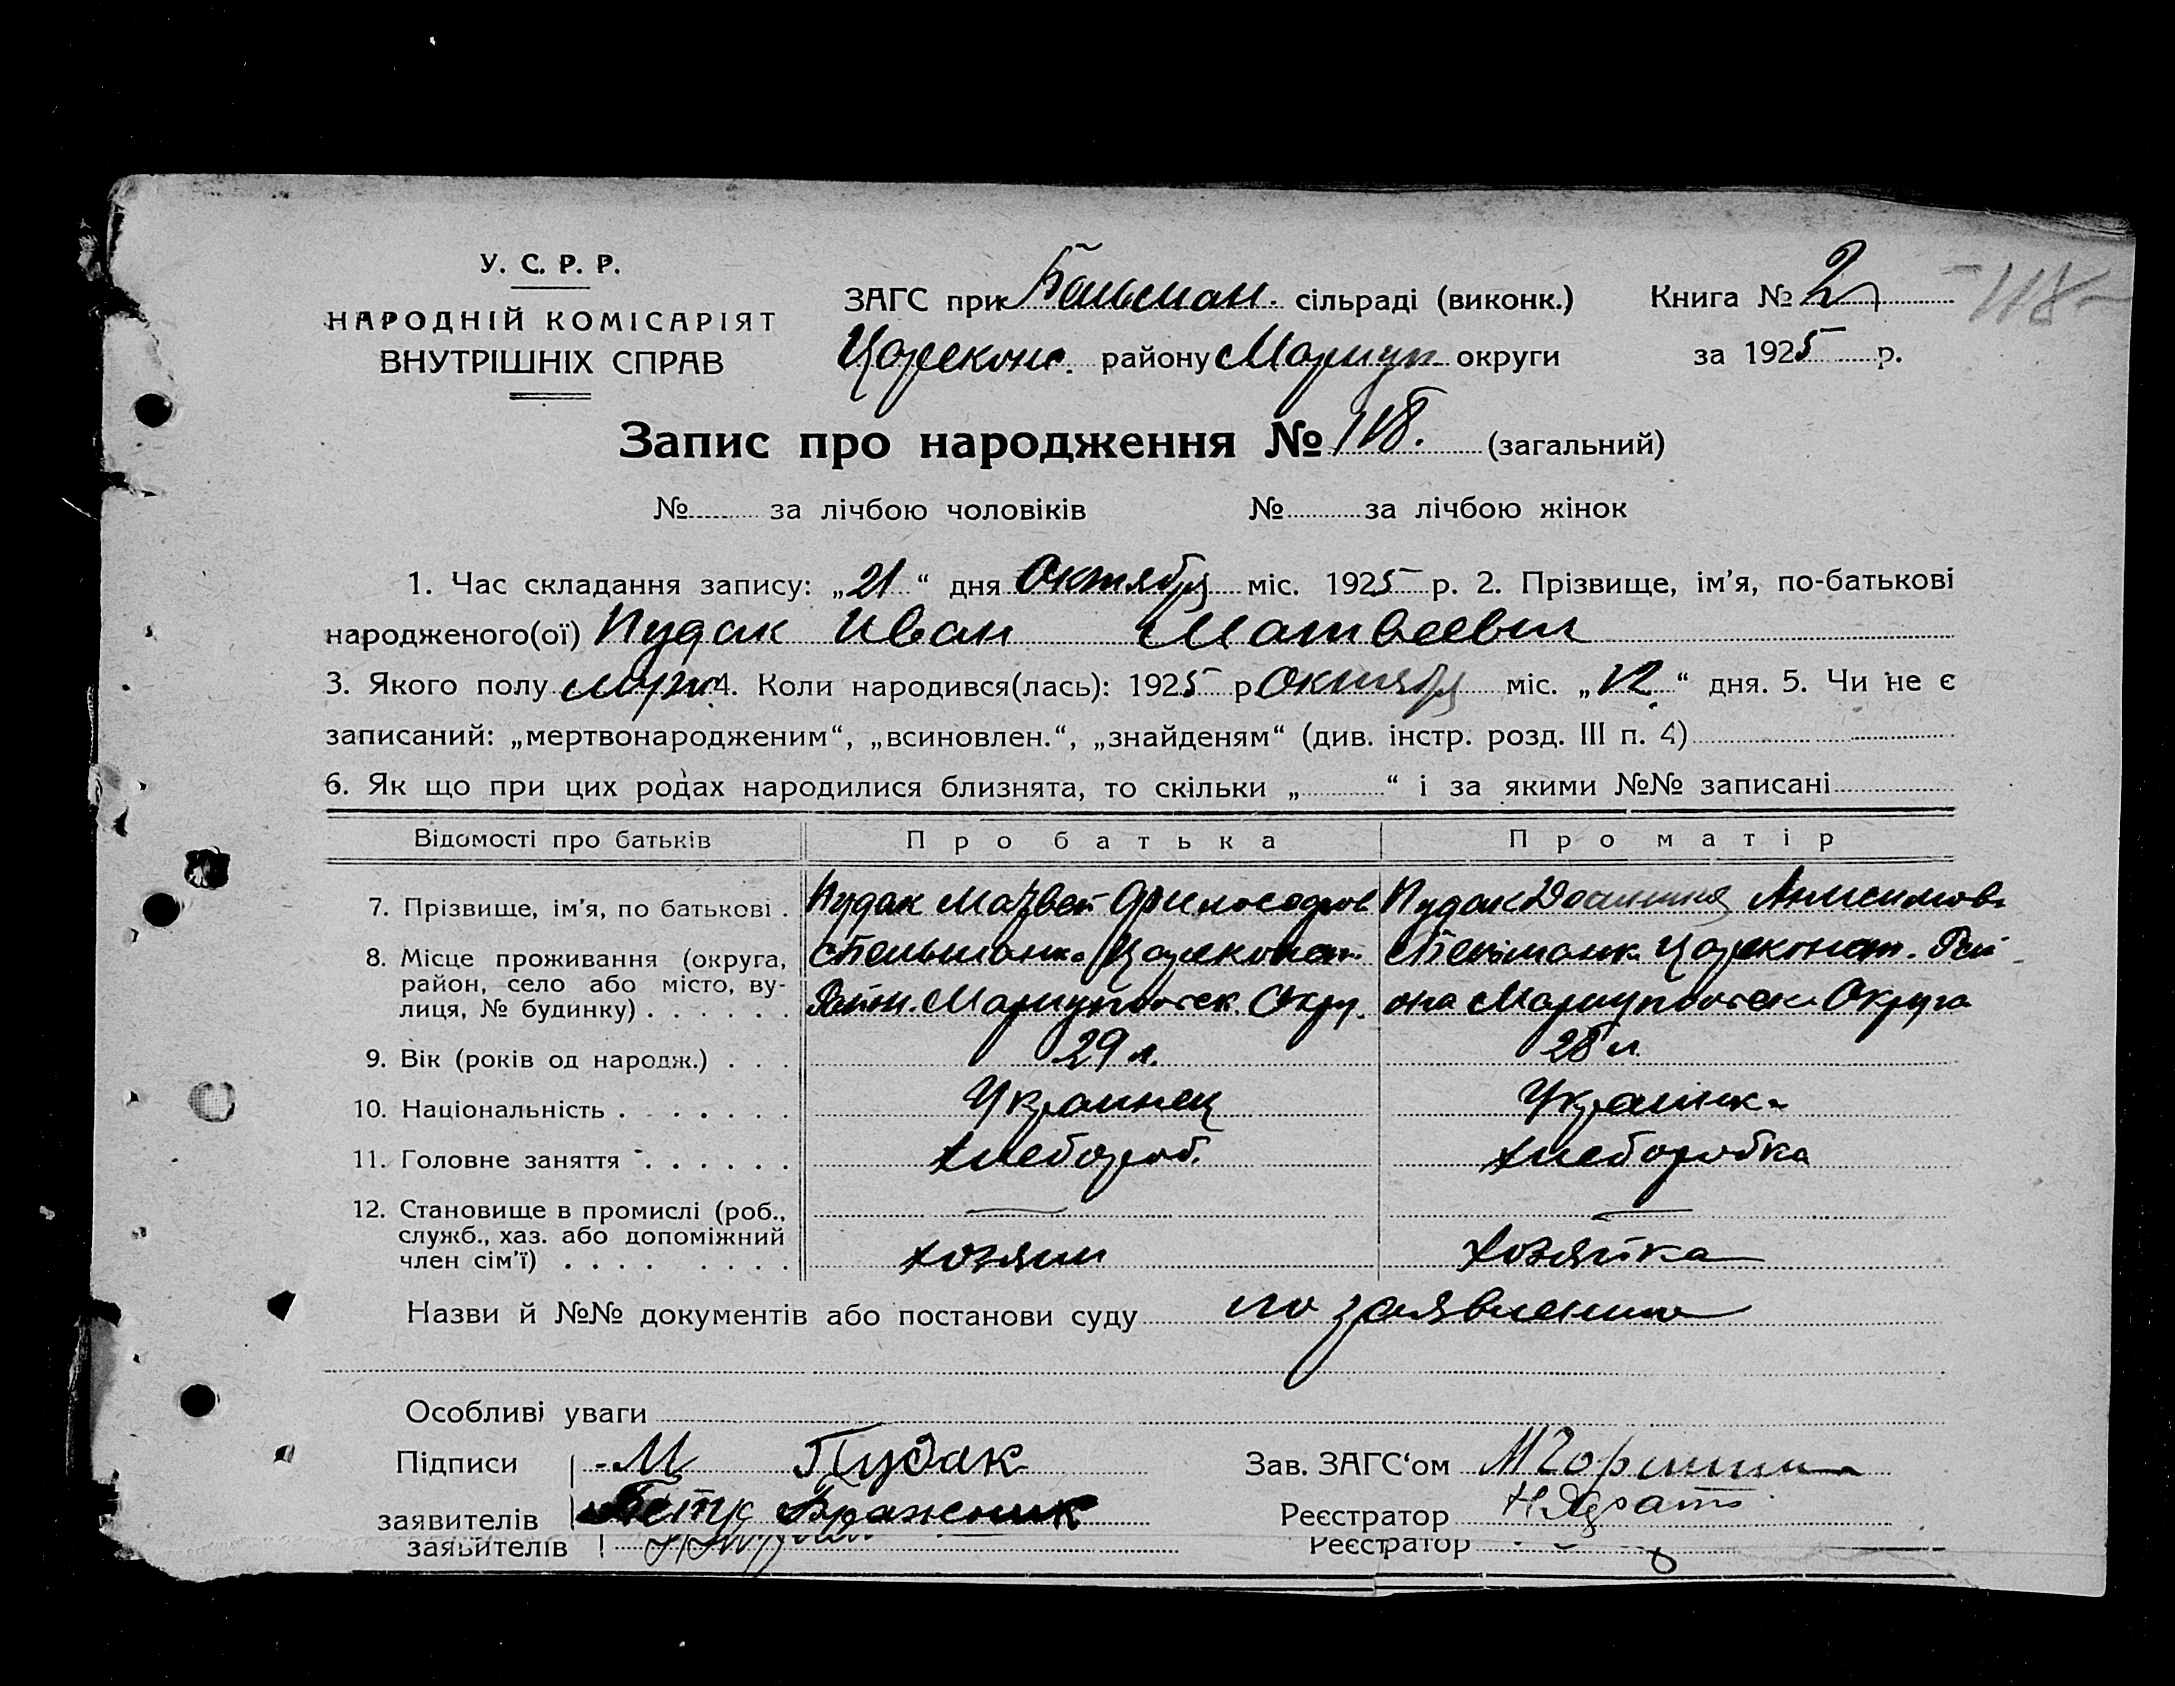 У. С. Р. Р.
НАРОДНІЙ КОМІСАРІЯТ
ВНУТРІШНІХ СПРАВ
ЗАГС при Бельман. сільраді (виконк.)
Цареконс. району Мариуп округи
Книга № 2
за 1925 р.
118
Запис про народження № 118. (загальний)
№ за лічбою чоловіків № за лічбою жінок
1. Час складання запису: „21“ дня Октября міс. 1925 р. 2. Прізвище, ім’я, по-батькові
народженого(ої) Пудак Иван Матвеевич
3. Якого полу муж. 4. Коли народився(лась): 1925 р. Октября міс. „12“ дня. 5. Чи не є
записаний: „мертвонародженим“, „всиновлен.“, „знайденям“ (див. інстр. розд. III п. 4)
6. Як що при цих родах народилися близнята, то скільки „ “ і за якими №№ записані
Відомості про батьків Про батька Про матір
7. Прізвище, ім’я, по батькові . Пудак Матвей Филосодров Пудак Анисимов.
8. Місце проживання (округа, с Бельманк. Цареконст. с Бельманк. Цареконст. Рай
район, село або місто, ву-
лиця, № будинку) . . . . . . Район. Мариупольск. Окру. она Мариупольск. Округа
9. Вік (років од народж.) . . . 29 л. 28 л.
10. Національність . . . . . . . Украинец Украинк.
11. Головне заняття . . . . . . Хлебороб. Хлеборобка
12. Становище в промислі (роб.,
служб., хаз. або допоміжний
член сім’ї) . . . . . . . . хозяин хозяйка
Назви й №№ документів або постанови суду по заявлению
Особливі уваги
Підписи М Пудак Зав. ЗАГС‘ом
заявителів Петр Бражник Реєстратор
заявителів Реєстратор